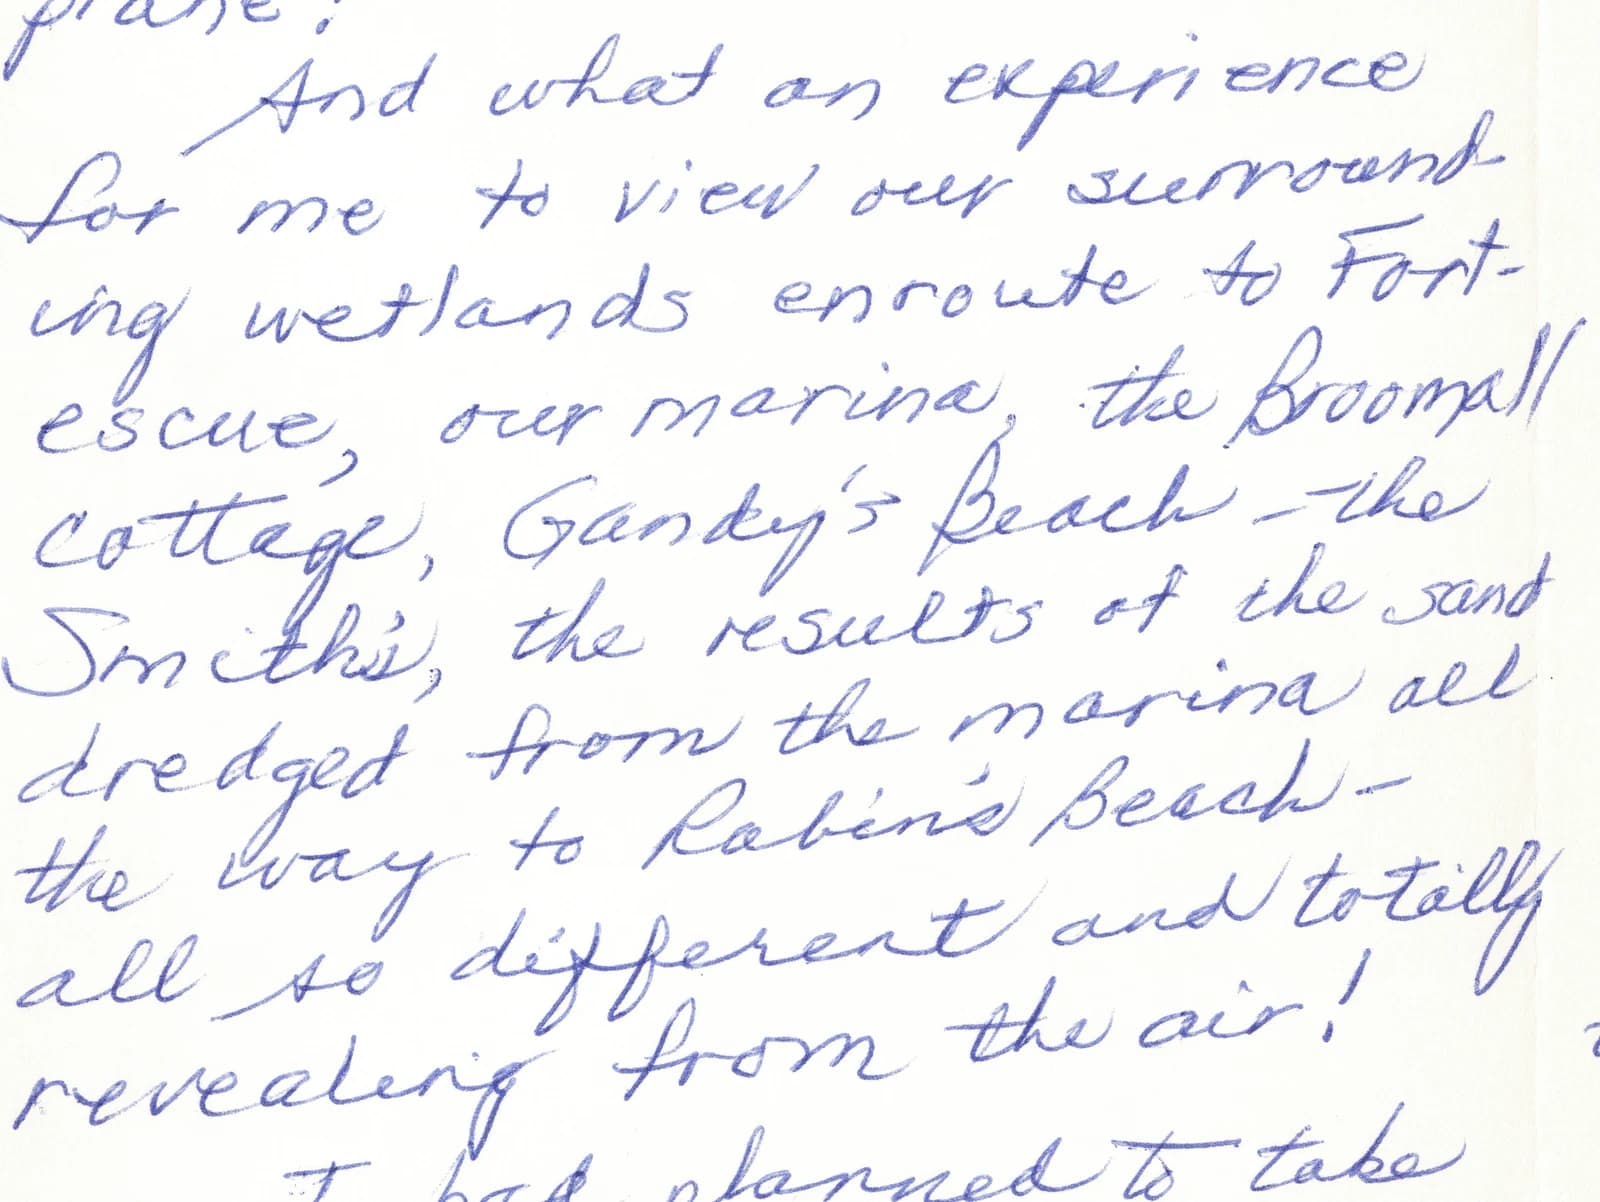 plane!
And what an experience
for me to view our surround-
ing wetlands enroute to Fort-
escue, our marina, the Broomall
cottage, Gandy's Beach - the
Smith's, the results of the sand
dredged from the marina all
the way to Rabin's Beach -
all so different and totally
revealing from the air!
I had planned to take